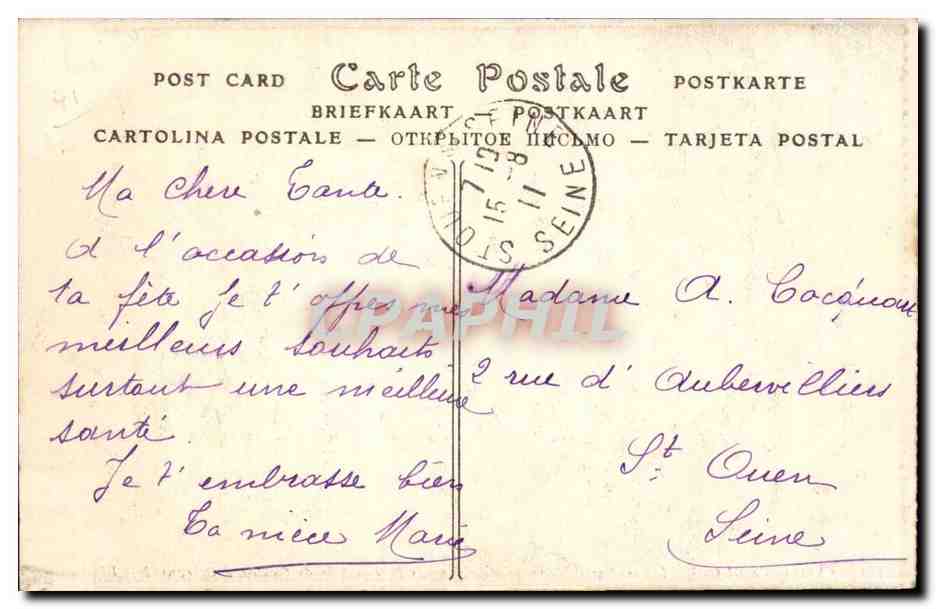 POST CARD Carte Postale POSTKARTE
BRIEFKAART — POSTKAART
CARTOLINA POSTALE — ОТКРЫТОЕ ПИСЬМО — TARJETA POSTAL
ST OUEN SEINE
15 7 19
-8
11
SEINE
Ma chere Tante.
A l'occasion de
ta fête Je t'offres mes
meilleurs souhaits
surtout une meilleure
santé.
Je t'embrasse bien
Ta nièce Marie
Madame A.
2 rue d'Aubervilliers
St. Ouen
Seine
CPAPHIL